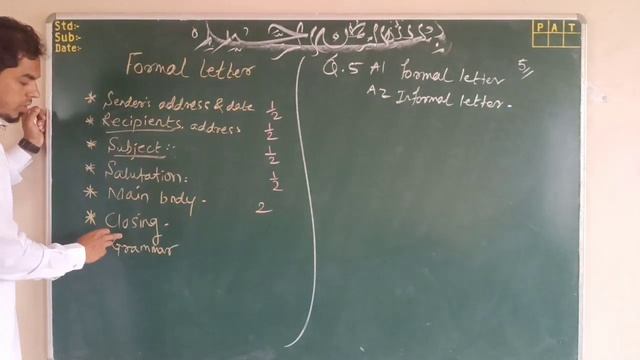 Std:-
Sub:-
Date:-
P A T
Formal letter
* Sender's address & date 1/2
* Recipients address 1/2
* Subject:- 1/2
* Salutation: 1/2
* Main body. 2
* Closing.
Grammar
Q.5 A1 Formal letter 5//
A2 Informal letter.